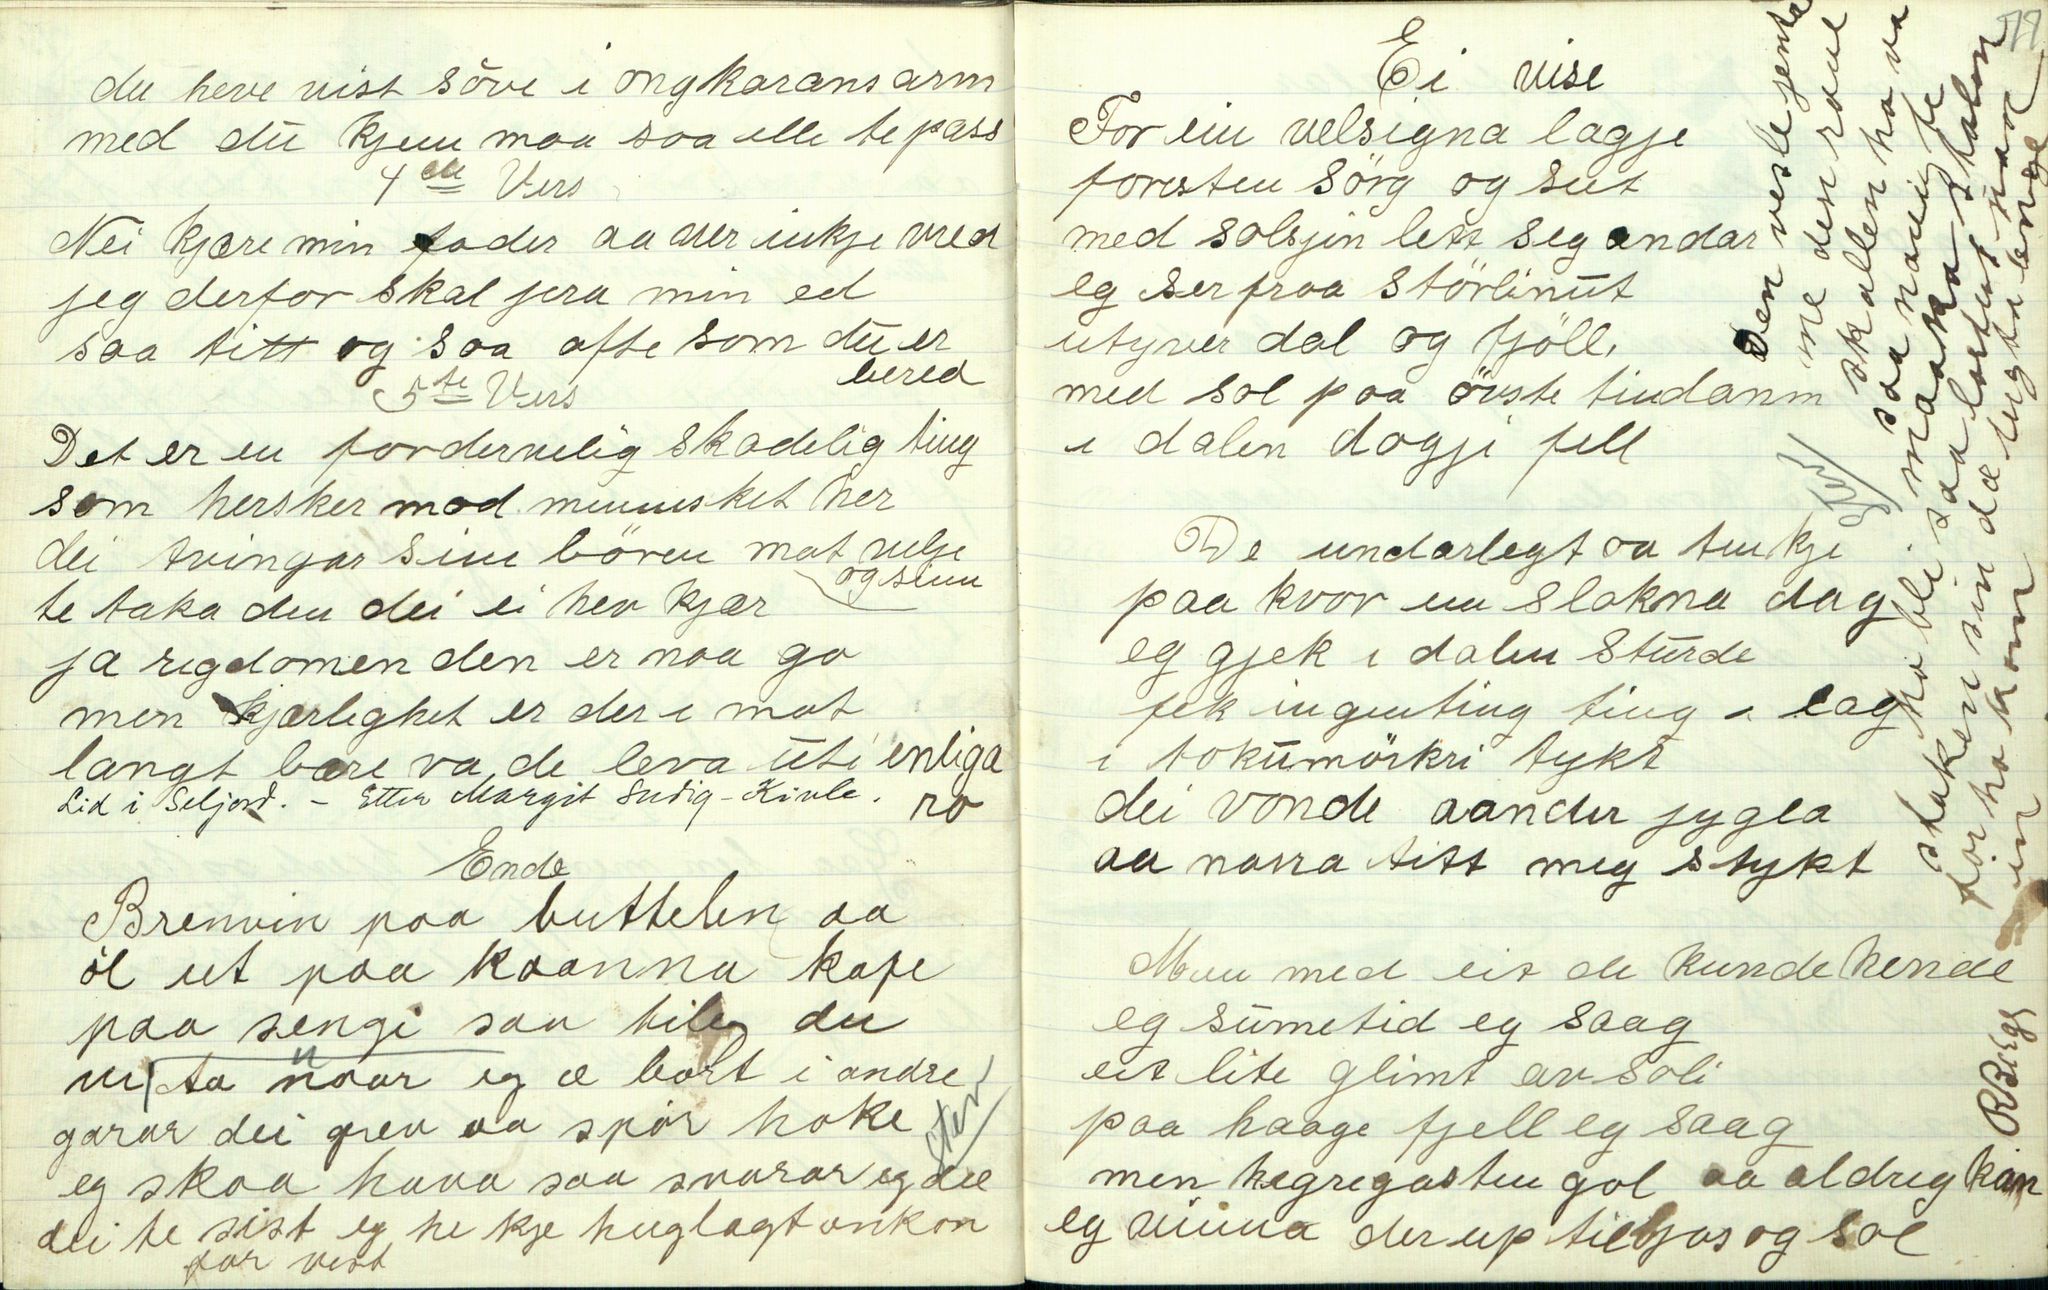 du heve vist söve i ongkarans arm
med du kjem maa saa ille te pass
4de Vers
Nei kjære min fader aa ver inkje vred
jeg derfor skal jera min ed
saa titt og saa ofte som du er
bered
5te Vers
Det er en fordervelig skadelig ting
som hersker mod mennesket her
dei tvingar sine bören mot vilje
og sinn
te taka den dei ei hev kjær
ja rigdomen den er naa go
men kjærligket er der i mot
langt bære va de leva uti enliga
ro
Lid i Seljord. - Etter Margit Sudig-Kivle.
Ende
Brenvin paa buttelen aa
öl ut paa kaanna kafe
paa sengi saa tileg du
vi ta naar eg æ bort i andre
garar dei grev aa spör hoke
eg skaa hava saa svarar eg dei
Stev
dei te sist eg he kje huglagt onkon
for visst
77
Ei vise
For ein velsigna lagje
foresten sörg og sut
med solsjin lett seg andar
eg ser fraa störlinut
utyver dal og fjöll
med sol paa övste tindann
i dalen dogji fell
De underlegt aa tenkje
paa kvor en slokna dag
eg gjek i dalen sturde
fek ingenting ting i lag
i tokumörkri tykt
dei vonde aander jygla
aa narra titt meg stykt
Men med eit de kunde hende
eg sumetid eg saag
eit lite glimt av soli
paa haage fjell eg saag
men hegregasten gol aa aldrig kan
eg vinna der up til ljos og sol
Stev
Den vesle jenta
me den raue
skallen ho va
saa narrig te
maaka stalen
ho bli saa lastug naar
staken sin dæ lugta lenge
för ho kom
inn
RBerge